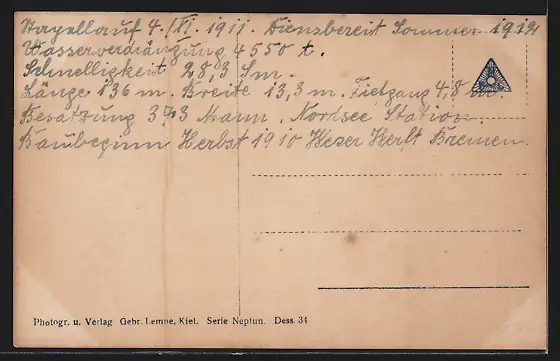 Stapellauf 4./XI. 1911. Diensbereit Sommer 1912
Wasserverdrängung 4550 t.
Schnelligkeit 28,3 Sm.
Länge 136 m. Breite 13,3 m. Tiefgang 4,8 m.
Besatzung 373 Mann. Nordsee Station.
Baubeginn Herbst 1910 Weser Werft Bremen.
Photogr. u. Verlag Gebr. Lempe, Kiel. Serie Neptun. Dess. 34